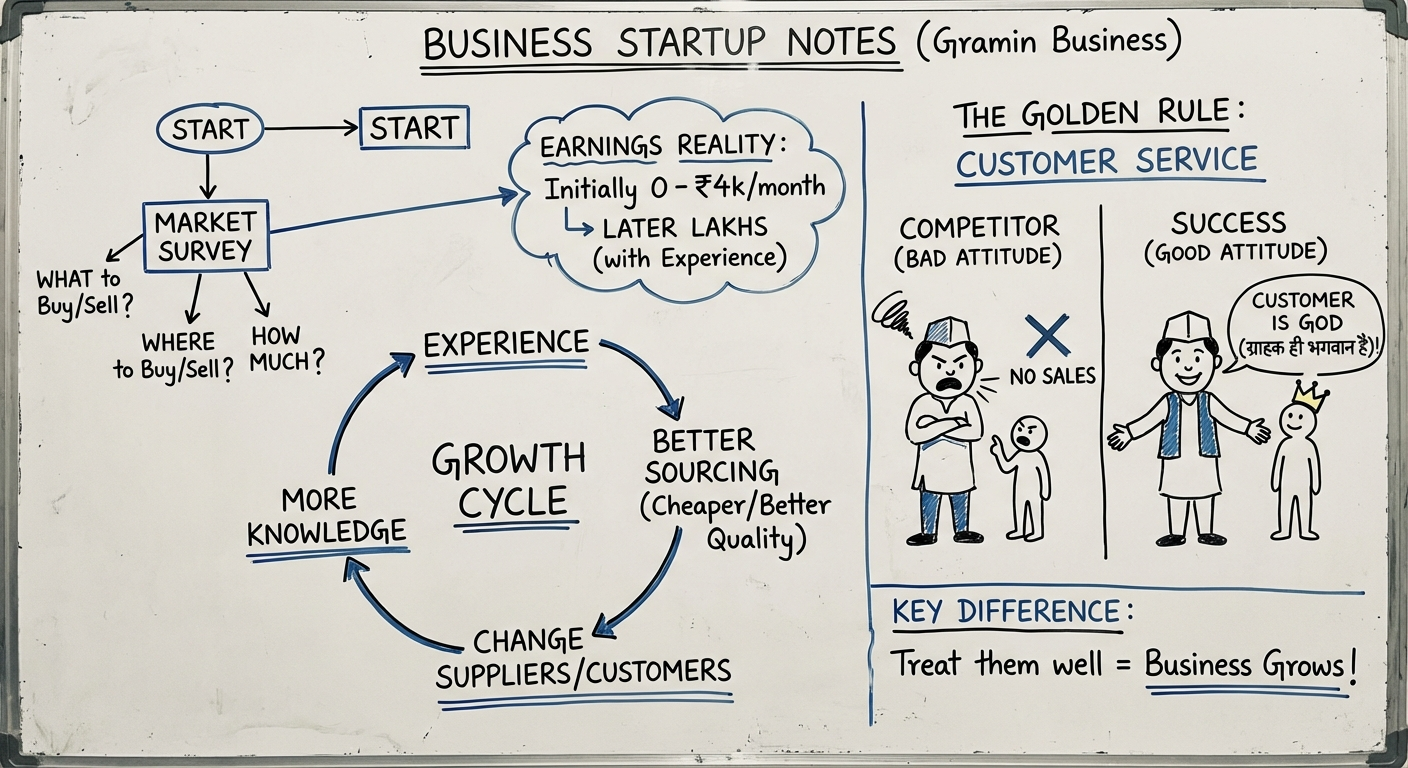 BUSINESS STARTUP NOTES (Gramin Business)
START
START
MARKET
SURVEY
WHAT to
Buy/Sell?
WHERE
to Buy/Sell?
HOW
MUCH?
EARNINGS REALITY:
Initially 0 - ₹4k/month
LATER LAKHS
(with Experience)
GROWTH
CYCLE
EXPERIENCE
BETTER
SOURCING
(Cheaper/Better
Quality)
CHANGE
SUPPLIERS/CUSTOMERS
MORE
KNOWLEDGE
THE GOLDEN RULE:
CUSTOMER SERVICE
COMPETITOR
(BAD ATTITUDE)
NO SALES
SUCCESS
(GOOD ATTITUDE)
CUSTOMER
IS GOD
(ग्राहक ही भगवान है)!
KEY DIFFERENCE:
Treat them well = Business Grows!